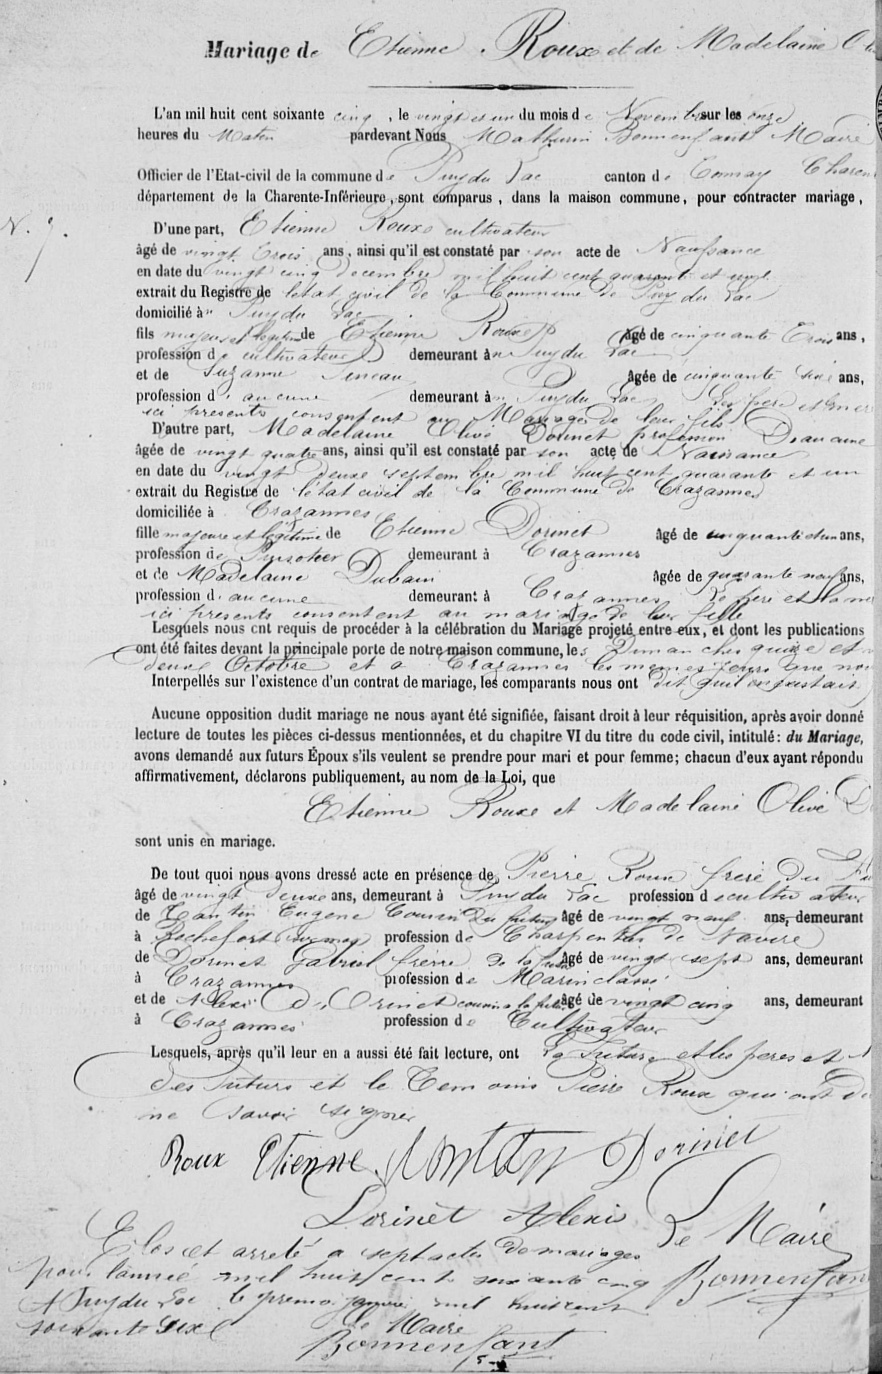 Mariage de Etienne Roux et de Madelaine Ol
L'an mil huit cent soixante cinq, le vingt et un du mois de Novembre sur les onze
heures du Matin pardevant Nous Mathurin Bonnenfant Maire
Officier de l'Etat-civil de la commune de Puy du Lac canton de Tonnay Charen
département de la Charente-Inférieure, sont comparus, dans la maison commune, pour contracter mariage,
N. 7.
D'une part, Etienne Roux cultivateur
âgé de vingt trois ans, ainsi qu'il est constaté par son acte de Naissance
en date du vingt cinq decembre mil huit cent quarante et
extrait du Registre de l'état civil de la Commune de Puy du Lac
domicilié à Puy du Lac
fils majeur et legitime de Etienne Roux âgé de cinquante trois ans,
profession de cultivateur demeurant à Puy du Lac
et de Suzanne Pineau âgée de cinquante ans,
profession d'aucune demeurant à Puy du Lac Les père et mere
ici presents consentent au Mariage de leur fils
D'autre part, Madelaine Olive Dorinet profession D'aucune
âgée de vingt quatre ans, ainsi qu'il est constaté par son acte de Naissance
en date du vingt deux septembre mil huit cent quarante et un
extrait du Registre de l'état civil de la Commune de Crazannes
domiciliée à Crazannes
fille majeure et legitime de Etienne Dorinet âgé de cinquante et un ans,
profession de demeurant à Crazannes
et de Madelaine Dubain âgée de quarante neuf ans,
profession d'aucune demeurant à Crazannes Le père et la me
ici presents consentent au mariage de leur fille
Lesquels nous ont requis de procéder à la célébration du Mariage projeté entre eux, et dont les publications
ont été faites devant la principale porte de notre maison commune, les Dimanches quinze et
deux Octobre et a Crazannes les memes jours que nous
Interpellés sur l'existence d'un contrat de mariage, les comparants nous ont dit qu'il
Aucune opposition dudit mariage ne nous ayant été signifiée, faisant droit à leur réquisition, après avoir donné
lecture de toutes les pièces ci-dessus mentionnées, et du chapitre VI du titre du code civil, intitulé: du Mariage,
avons demandé aux futurs Époux s'ils veulent se prendre pour mari et pour femme; chacun d'eux ayant répondu
affirmativement, déclarons publiquement, au nom de la Loi, que
Etienne Roux et Madelaine Olive D
sont unis en mariage.
De tout quoi nous avons dressé acte en présence de Pierre Roux frère du
âgé de vingt deux ans, demeurant à Puy du Lac profession de cultivateur
de Eugene Cousin du futur âgé de vingt neuf ans, demeurant
à Rochefort sur mer profession de Charpentier de Navire
de Dorinet Gabriel frère de la future âgé de vingt sept ans, demeurant
à Crazannes profession de Marin classé
et de Alexi Dorinet cousin a la future âgé de vingt cinq ans, demeurant
à Crazannes profession de Cultivateur
Lesquels, après qu'il leur en a aussi été fait lecture, ont La future et les peres et
des futurs et le Temoins Pierre Roux qui ont d
ne savoir signer
Roux Etienne Dorinet
Dorinet Alexis Le Maire
Bonnenfant
Clos et arreté a sept actes de mariages
pour l'année mil huit cent soixante cinq
A Puy du Lac le premier janvier mil huit cent
soixante six
Le Maire
Bonnenfant